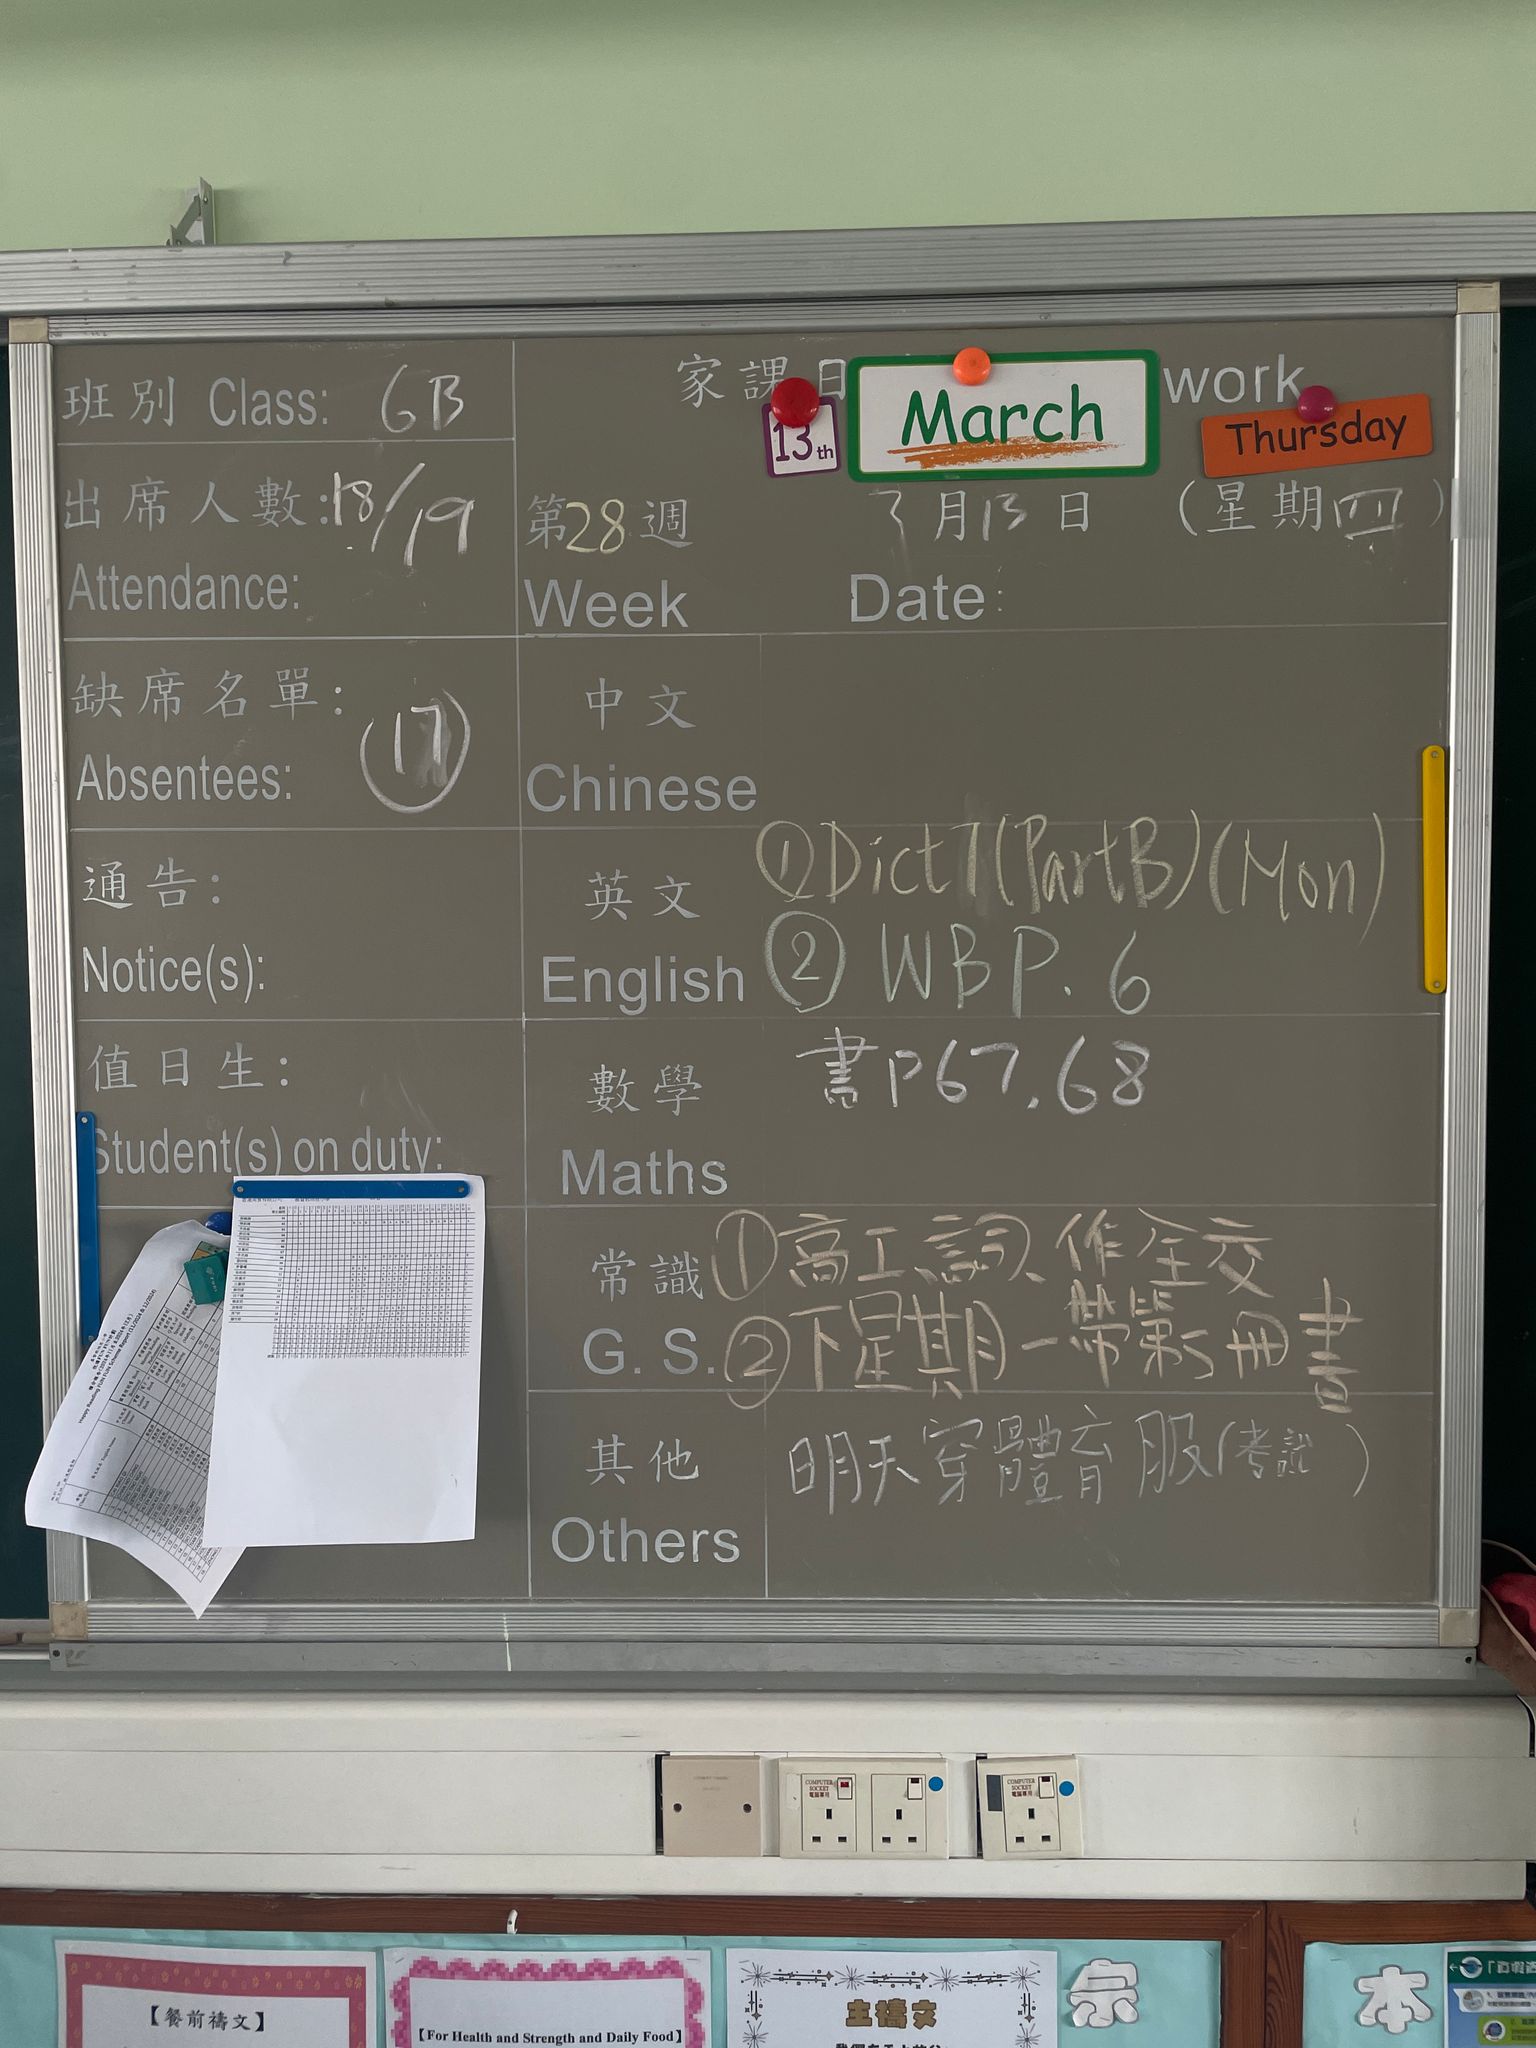 班別 Class: 6B
家課日
work
13th
March
Thursday
出席人數: 18/19
Attendance:
第28週
Week
3月13日 (星期四)
Date:
缺席名單:
Absentees:
17
中文
Chinese
通告:
Notice(s):
英文
English
①Dict 7 (Part B) (Mon)
② WB P. 6
值日生:
Student(s) on duty:
數學
Maths
書P67.68
常識
G. S.
①高工、詞、作全交
②下星期一帶第5冊書
其他
Others
明天穿體育服(考試)
Happy Reading FUN FUN Scheme Report (11/2024 & 12/2024)
COMPUTER
SOCKET
電腦專用
COMPUTER
SOCKET
電腦專用
【餐前禱文】
【For Health and Strength and Daily Food】
主禱文
宗
本